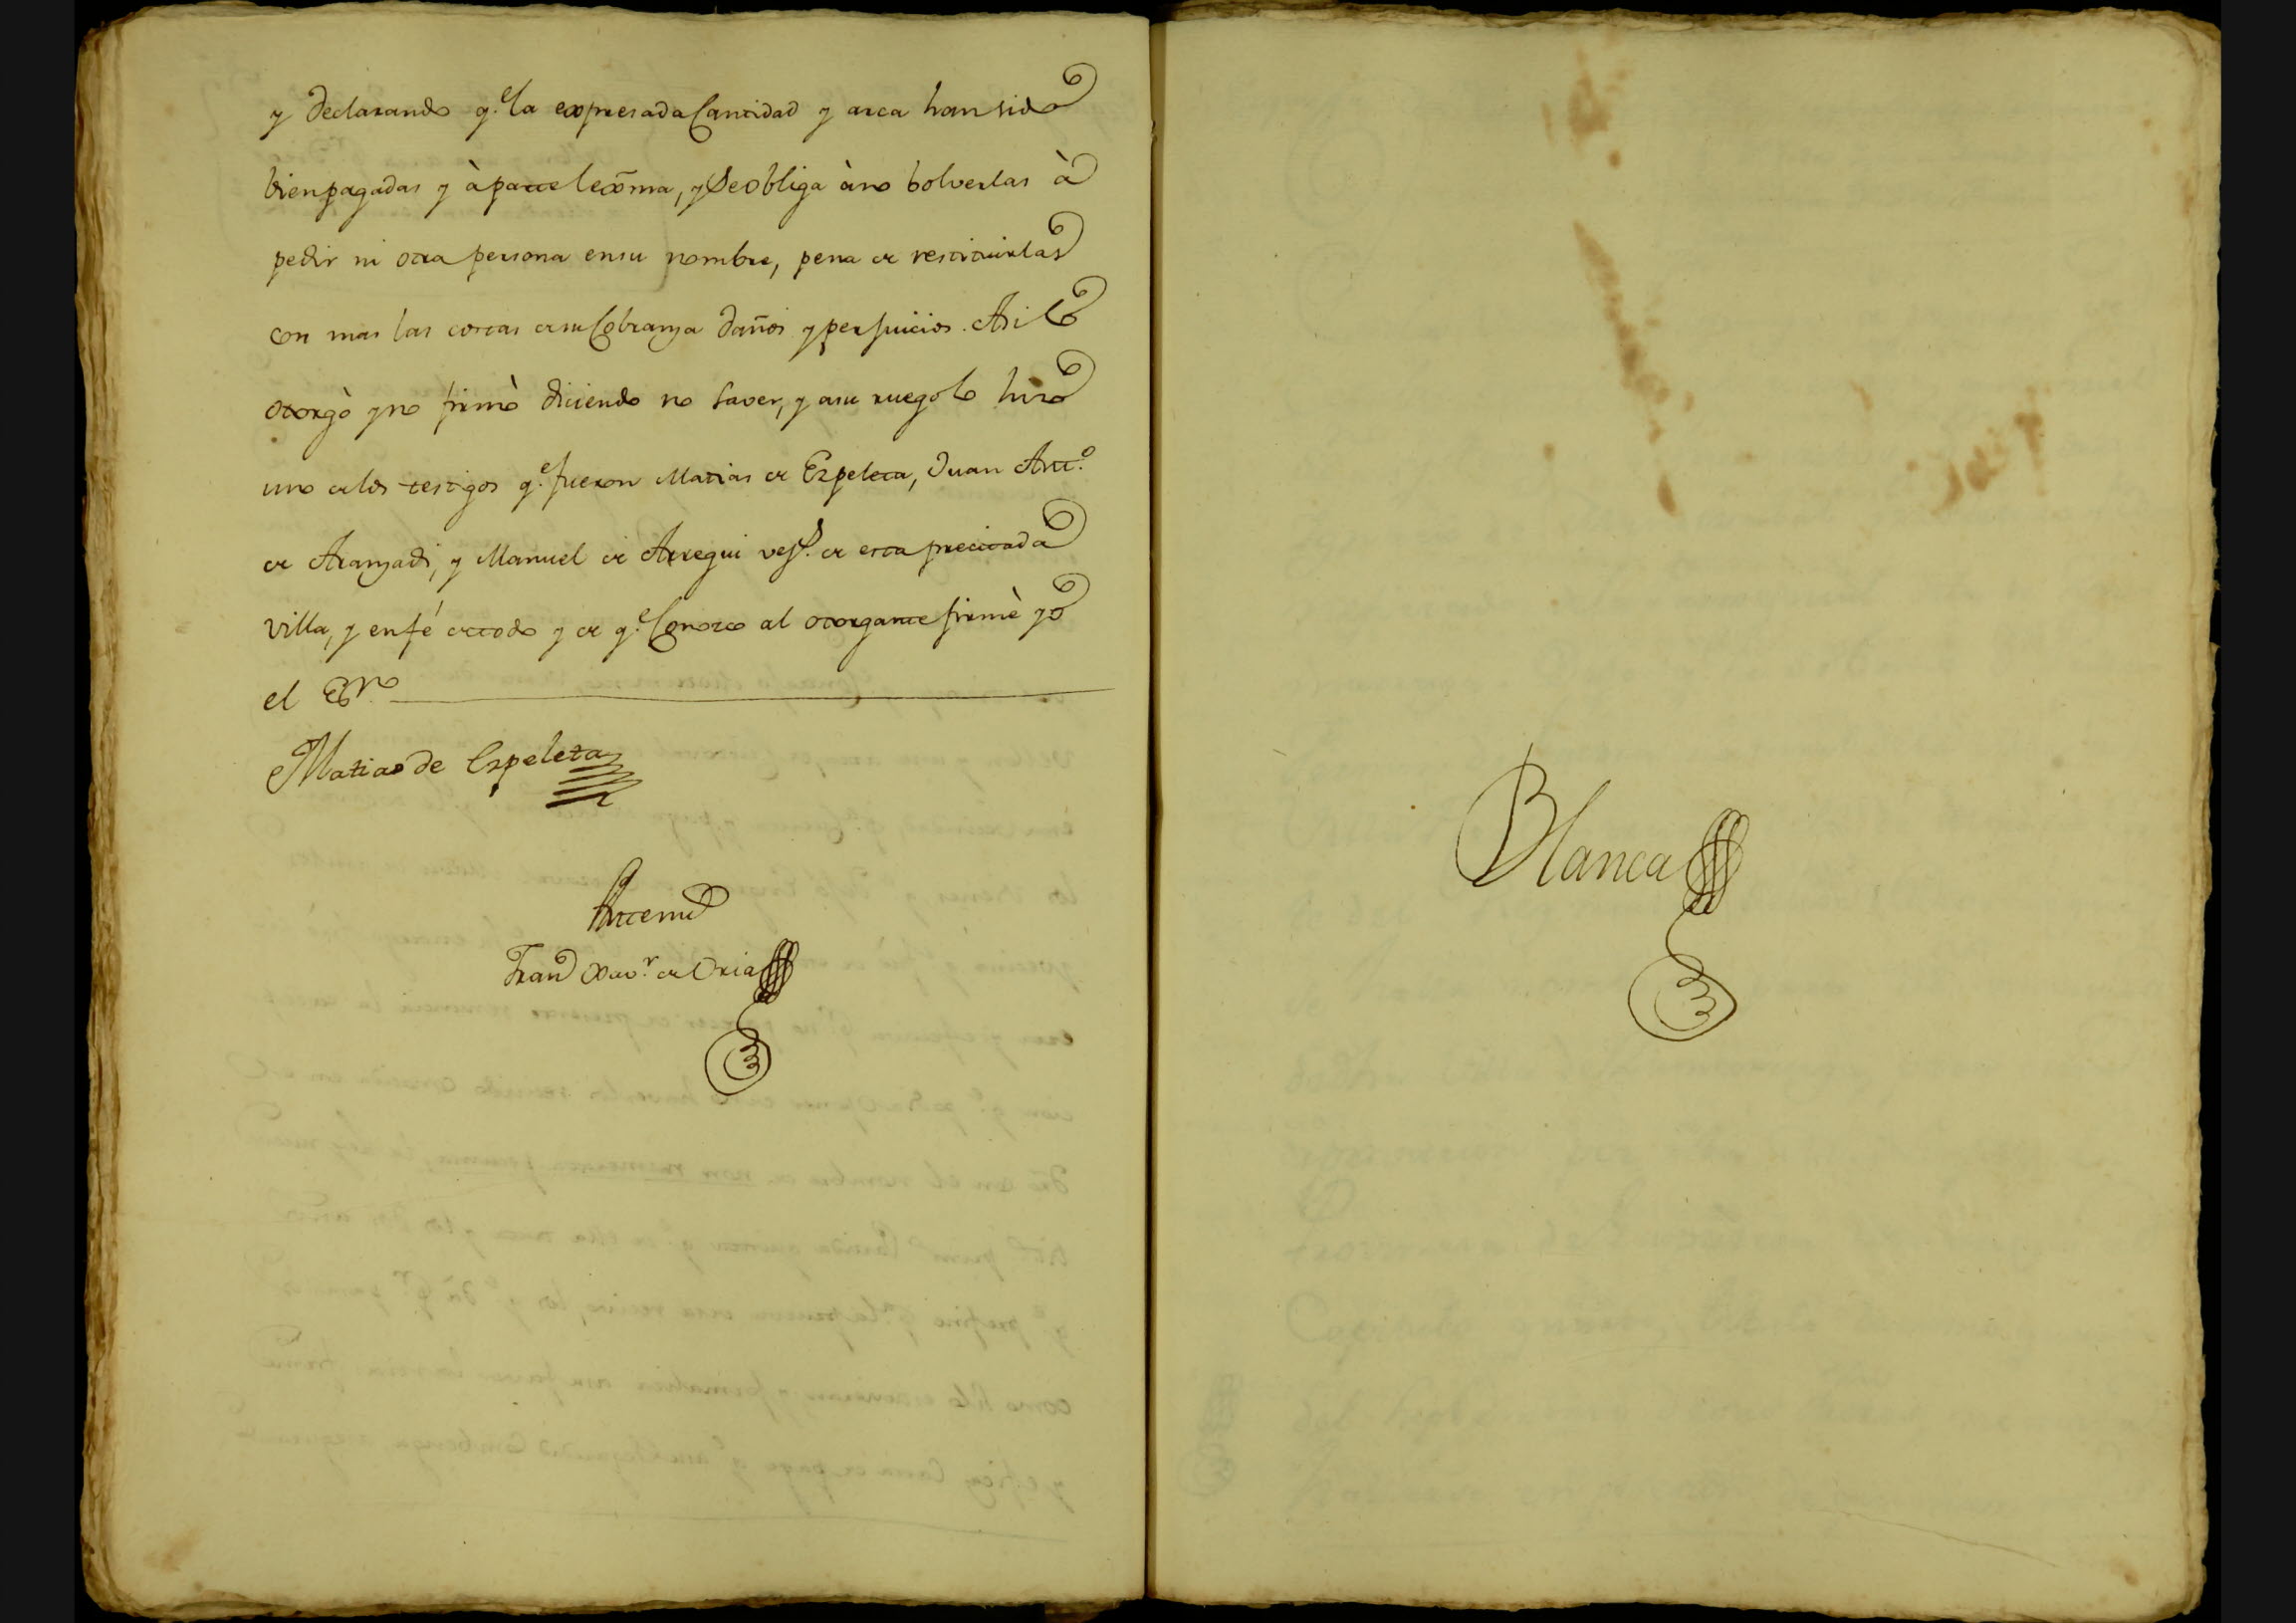 y declarando q.e la expresada Cantidad y arca han sido
bien pagadas y à parte lexma, y se obliga à no bolverlas à
pedir ni otra persona en su nombre, pena de restituirlas
con mas las costas de su Cobranza daños y perjuicios. Asi lo
otorgò y no firmò diciendo no saver, y a su ruego lo hizo
uno de los testigos q.e fueron Matias de Ezpeleta, Juan Ant.o
de Aranzadi, y Manuel de Arregui vez.s de esta precitada
villa, y en fé de todo y de q.e Conozco al otorgante firmè yo
el Es.no
Matias de Ezpeleta
Ante mi
Fran.co Xav.r de Oria
Blanca